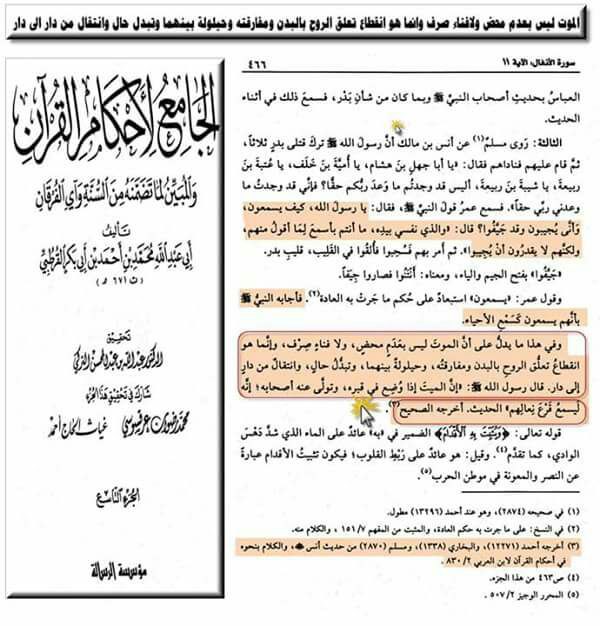 الموت ليس بعدم محض ولافناء صرف وانما هو انقطاع تعلق الروح بالبدن ومفارقته وحيلولة بينهما وتبدل حال وانتقال من دار الى دار
الجامع لأحكام القرآن
والمبين لما تضمنه من السنة وآي الفرقان
تأليف
أبي عبد الله محمد بن أحمد بن أبي بكر القرطبي
(ت ٦٧١ هـ)
تحقيق
الدكتور عبد الله بن عبد المحسن التركي
شارك في تحقيق هذا الجزء
محمد رضوان عرقسوسي غياث الحاج أحمد
الجزء التاسع
مؤسسة الرسالة
سورة الأنفال: الآية ١١
٤٦٦
العباسُ بحديثِ أصحاب النبيِّ ﷺ وبما كان من شأنِ بَدْر، فسمعَ ذلك في أثناء
الحديث.
الثالثة: رَوَى مسلمٌ(١) عن أنس بن مالك أنَّ رسولَ الله ﷺ تركَ قتلى بدرٍ ثلاثاً،
ثمَّ قام عليهم فناداهم فقال: «يا أبا جهلِ بنَ هشام، يا أُمَيَّةَ بنَ خَلَف، يا عُتبةَ بنَ
ربيعة، يا شيبةَ بنَ ربيعة، أليس قد وجدتُم ما وَعَدَ ربُّكم حقًّا؟ فإنِّي قد وجدتُ ما
وعدَني ربِّي حقًّا». فسمع عمرُ قولَ النبيِّ ﷺ، فقال: يا رسولَ الله، كيف يسمعون،
وأنَّى يُجيبون وقد جَيَّفُوا؟ قال: «والذي نفسي بيدِه، ما أنتم بأسمعَ لِمَا أقولُ منهم،
ولكنَّهم لا يقدرون أن يُجيبوا». ثم أمر بهم فسُحِبوا فأُلقوا في القَلِيب، قليبِ بدر.
«جَيَّفُوا» بفتح الجيم والياء، ومعناه: أَنتَنُوا فصاروا جِيَفاً.
وقول عمر: «يسمعون» استبعادٌ على حُكم ما جَرَتْ به العادة(٢). فأجابه النبيُّ ﷺ
بأنَّهم يسمعون كسَمْعِ الأحياء.
وفي هذا ما يدلُّ على أنَّ الموتَ ليس بعَدَمٍ محض، ولا فناءٍ صِرْف، وإنَّما هو
انقطاعُ تعلُّقِ الروحِ بالبدن ومفارقتُه، وحيلولةٌ بينهما، وتبدُّلُ حالٍ، وانتقالٌ من دارٍ
إلى دار. قال رسول الله ﷺ: «إنَّ الميتَ إذا وُضِعَ في قبره، وتولَّى عنه أصحابُه؛ إنَّه
لَيسمعُ قَرْعَ نِعالِهم» الحديث. أخرجه الصحيح(٣).
قوله تعالى: ﴿وَيُثَبِّتَ بِهِ الْأَقْدَامَ﴾ الضمير في «به» عائدٌ على الماء الذي شدَّ دَهْسَ
الوادي، كما تقدَّم(٤). وقيل: هو عائد على رَبْطِ القلوب؛ فيكون تثبيتُ الأقدام عبارةً
عن النصر والمعونة في موطن الحرب(٥).
(١) في صحيحه (٢٨٧٤)، وهو عند أحمد (١٣٢٩٦) مطول.
(٢) في النسخ: على ما جرت به حكم العادة، والمثبت من المفهم ٧/ ١٥١، والكلام منه.
(٣) أخرجه أحمد (١٢٢٧١)، والبخاري (١٣٣٨)، ومسلم (٢٨٧٠) من حديث أنس ﷺ، والكلام بنحوه
في أحكام القرآن لابن العربي ٢/ ٨٣٠.
(٤) ص٤٦٣ من هذا الجزء.
(٥) المحرر الوجيز ٢/ ٥٠٧.